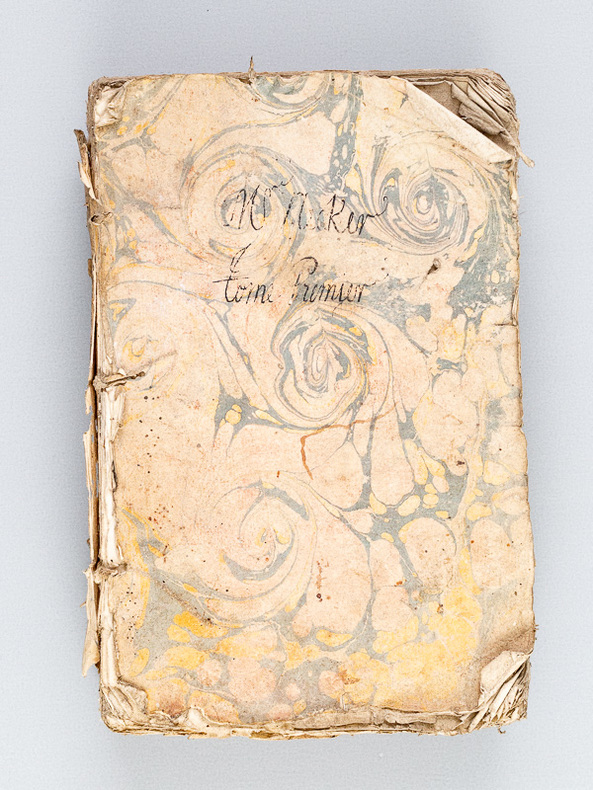 Mr Necker
tome Premier